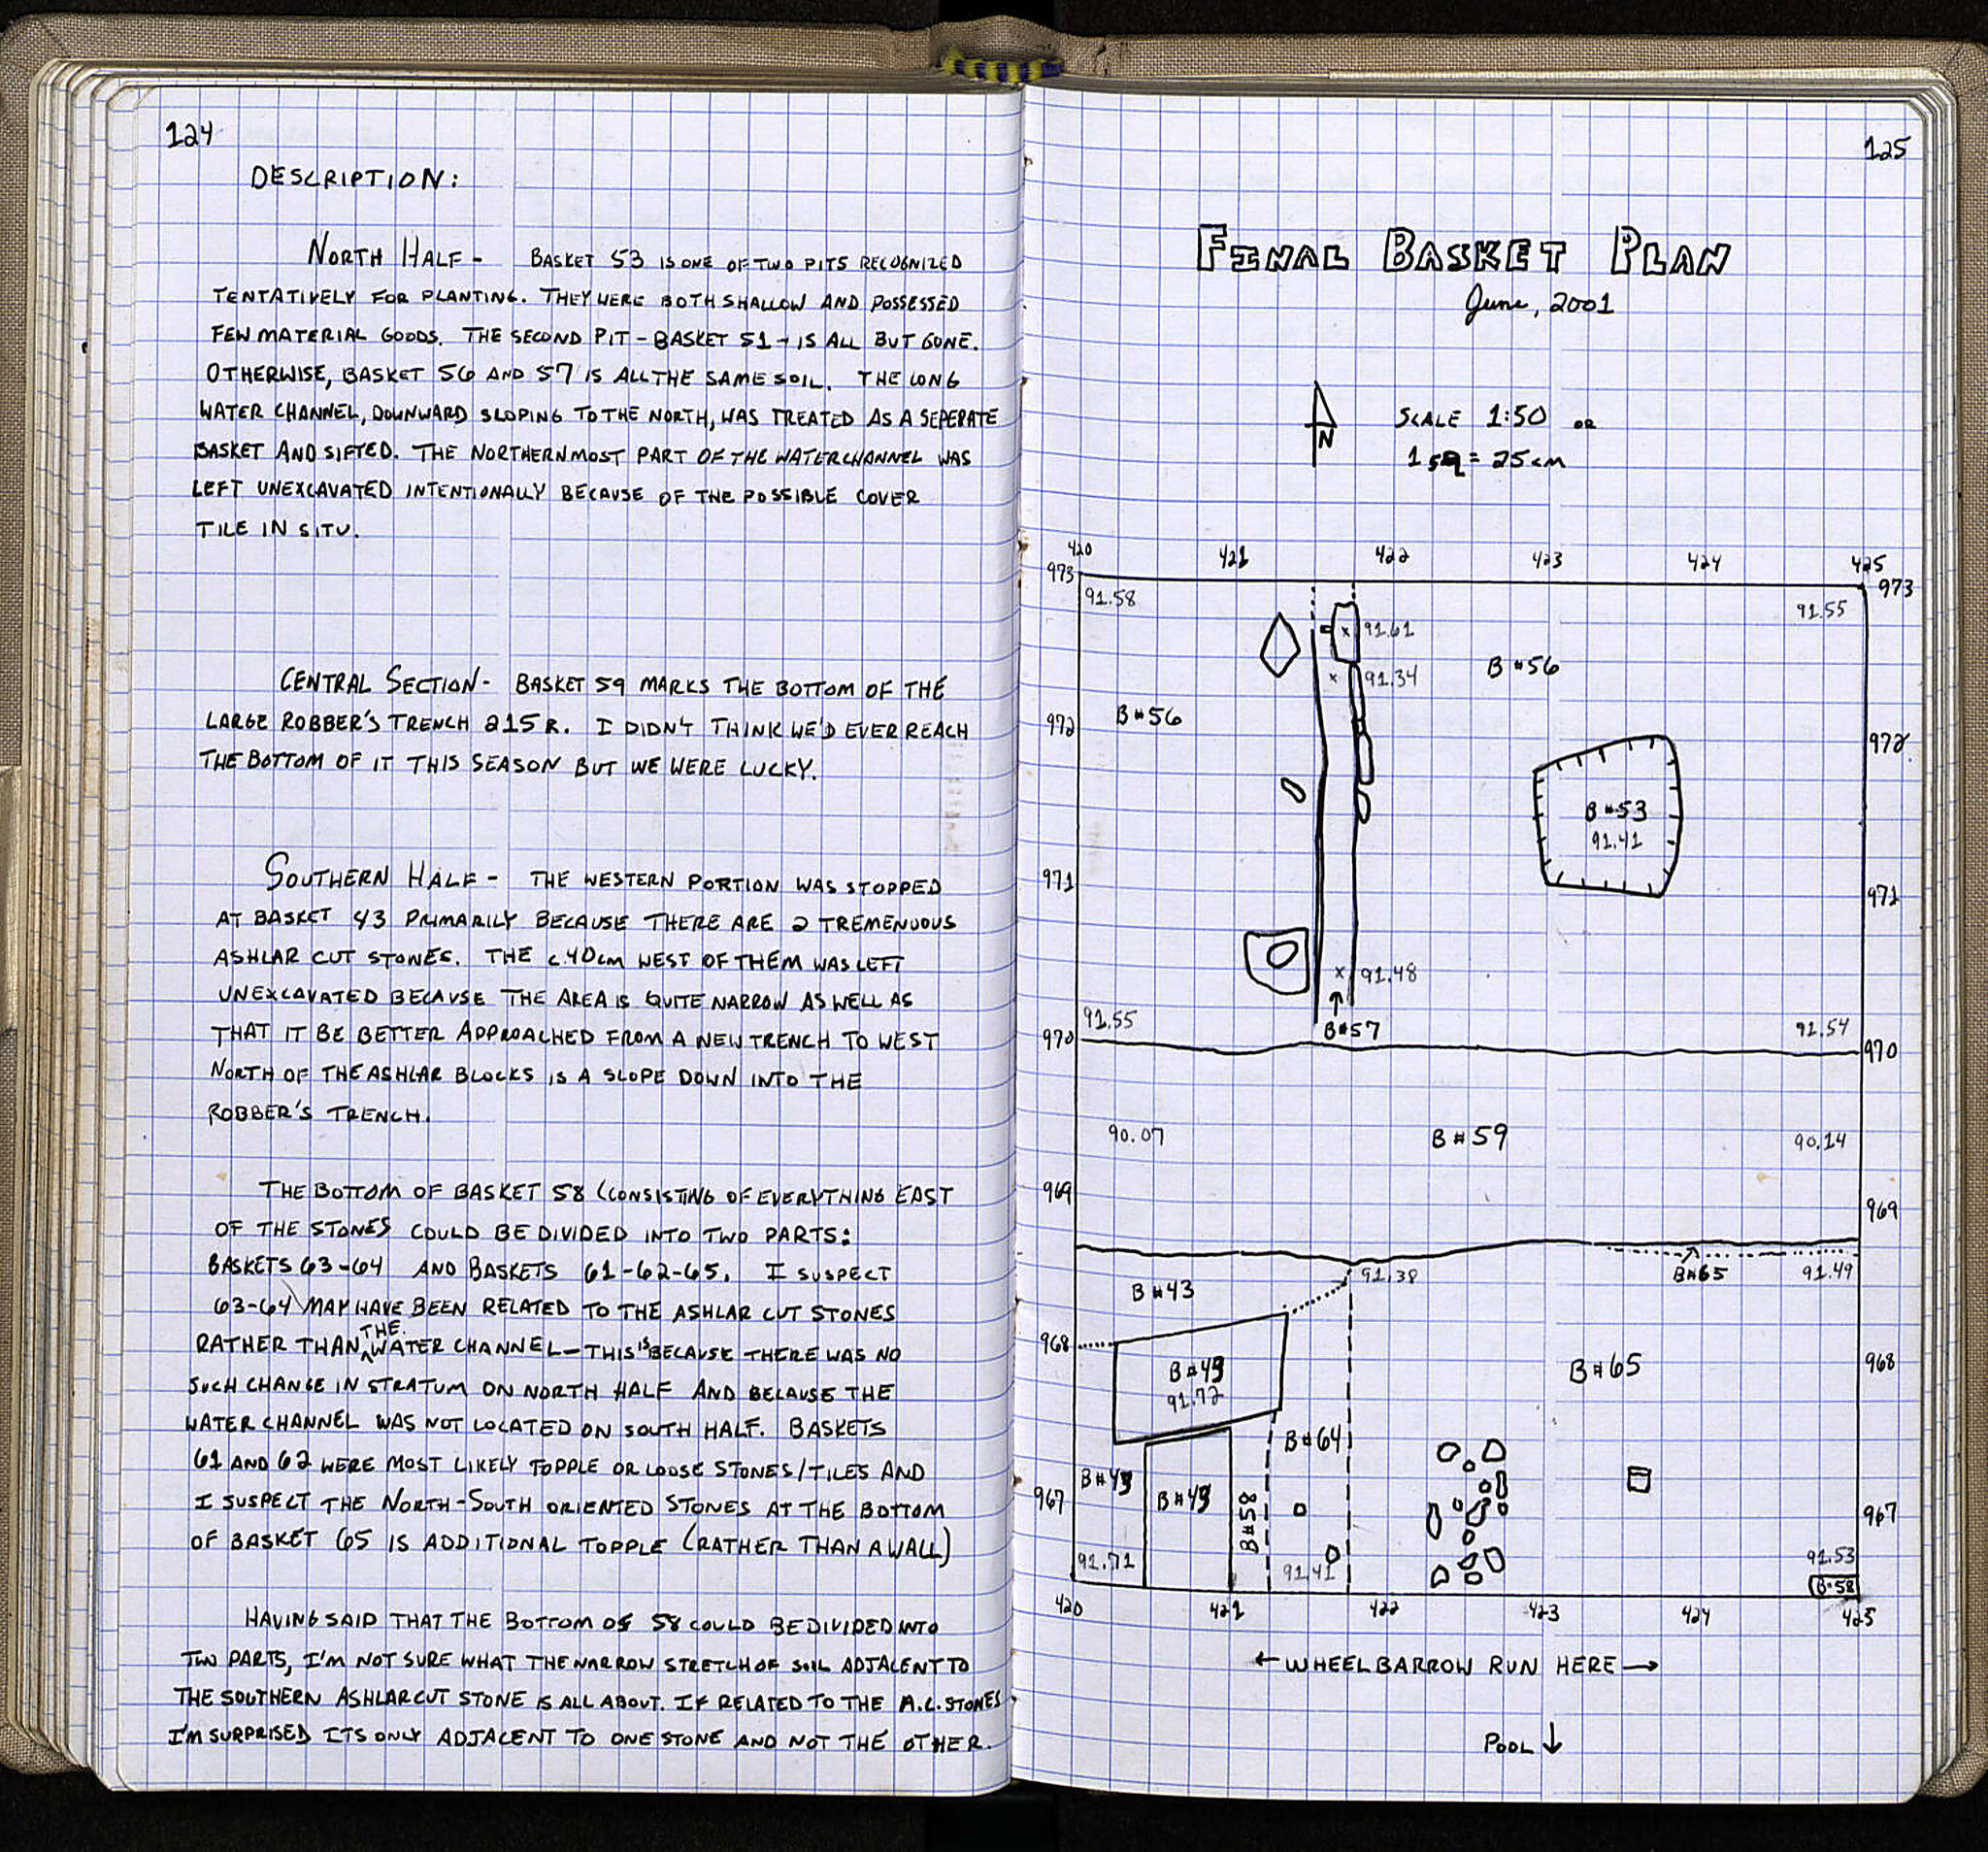 124
DESCRIPTION:
NORTH HALF - BASKET 53 IS ONE OF TWO PITS RECOGNIZED
TENTATIVELY FOR PLANTING. THEY WERE BOTH SHALLOW AND POSSESSED
FEW MATERIAL GOODS. THE SECOND PIT - BASKET 51 - IS ALL BUT GONE.
OTHERWISE, BASKET 56 AND 57 IS ALL THE SAME SOIL. THE LONG
WATER CHANNEL, DOWNWARD SLOPING TO THE NORTH, WAS TREATED AS A SEPERATE
BASKET AND SIFTED. THE NORTHERNMOST PART OF THE WATERCHANNEL WAS
LEFT UNEXCAVATED INTENTIONALLY BECAUSE OF THE POSSIBLE COVER
TILE IN SITU.
CENTRAL SECTION - BASKET 59 MARKS THE BOTTOM OF THE
LARGE ROBBER'S TRENCH 215R. I DIDN'T THINK WE'D EVER REACH
THE BOTTOM OF IT THIS SEASON BUT WE WERE LUCKY.
SOUTHERN HALF - THE WESTERN PORTION WAS STOPPED
AT BASKET 43 PRIMARILY BECAUSE THERE ARE 2 TREMENUOUS
ASHLAR CUT STONES. THE c.40cm WEST OF THEM WAS LEFT
UNEXCAVATED BECAUSE THE AREA IS QUITE NARROW AS WELL AS
THAT IT BE BETTER APPROACHED FROM A NEW TRENCH TO WEST
NORTH OF THE ASHLAR BLOCKS IS A SLOPE DOWN INTO THE
ROBBER'S TRENCH.
THE BOTTOM OF BASKET 58 (CONSISTING OF EVERYTHING EAST
OF THE STONES COULD BE DIVIDED INTO TWO PARTS:
BASKETS 63-64 AND BASKETS 61-62-65. I SUSPECT
63-64 MAY HAVE BEEN RELATED TO THE ASHLAR CUT STONES
RATHER THAN THE WATER CHANNEL - THIS IS BECAUSE THERE WAS NO
SUCH CHANGE IN STRATUM ON NORTH HALF AND BECAUSE THE
WATER CHANNEL WAS NOT LOCATED ON SOUTH HALF. BASKETS
61 AND 62 WERE MOST LIKELY TOPPLE OR LOOSE STONES/TILES AND
I SUSPECT THE NORTH-SOUTH ORIENTED STONES AT THE BOTTOM
OF BASKET 65 IS ADDITIONAL TOPPLE (RATHER THAN A WALL)
HAVING SAID THAT THE BOTTOM OF 58 COULD BE DIVIDED INTO
TWO PARTS, I'M NOT SURE WHAT THE NARROW STRETCH OF SOIL ADJACENT TO
THE SOUTHERN ASHLAR CUT STONE IS ALL ABOUT. IF RELATED TO THE A.C. STONES
I'M SURPRISED ITS ONLY ADJACENT TO ONE STONE AND NOT THE OTHER.
125
FINAL BASKET PLAN
June, 2001
N
SCALE 1:50 OR
1 sq = 25cm
420 421 422 423 424 425
973 973
91.58 91.55
x 91.61
x 91.34
B#56
B#56
972 972
B#53
91.41
971 971
x 91.48
91.55 B#57 91.54
970 970
90.07 B#59 90.14
969 969
91.38 B#65 91.49
B#43
968 B#65 968
B#43
91.72
B#64
B#43 B#43
B#58
967 967
91.71 91.41 91.53
B#58
420 421 422 423 424 425
← WHEELBARROW RUN HERE →
POOL ↓